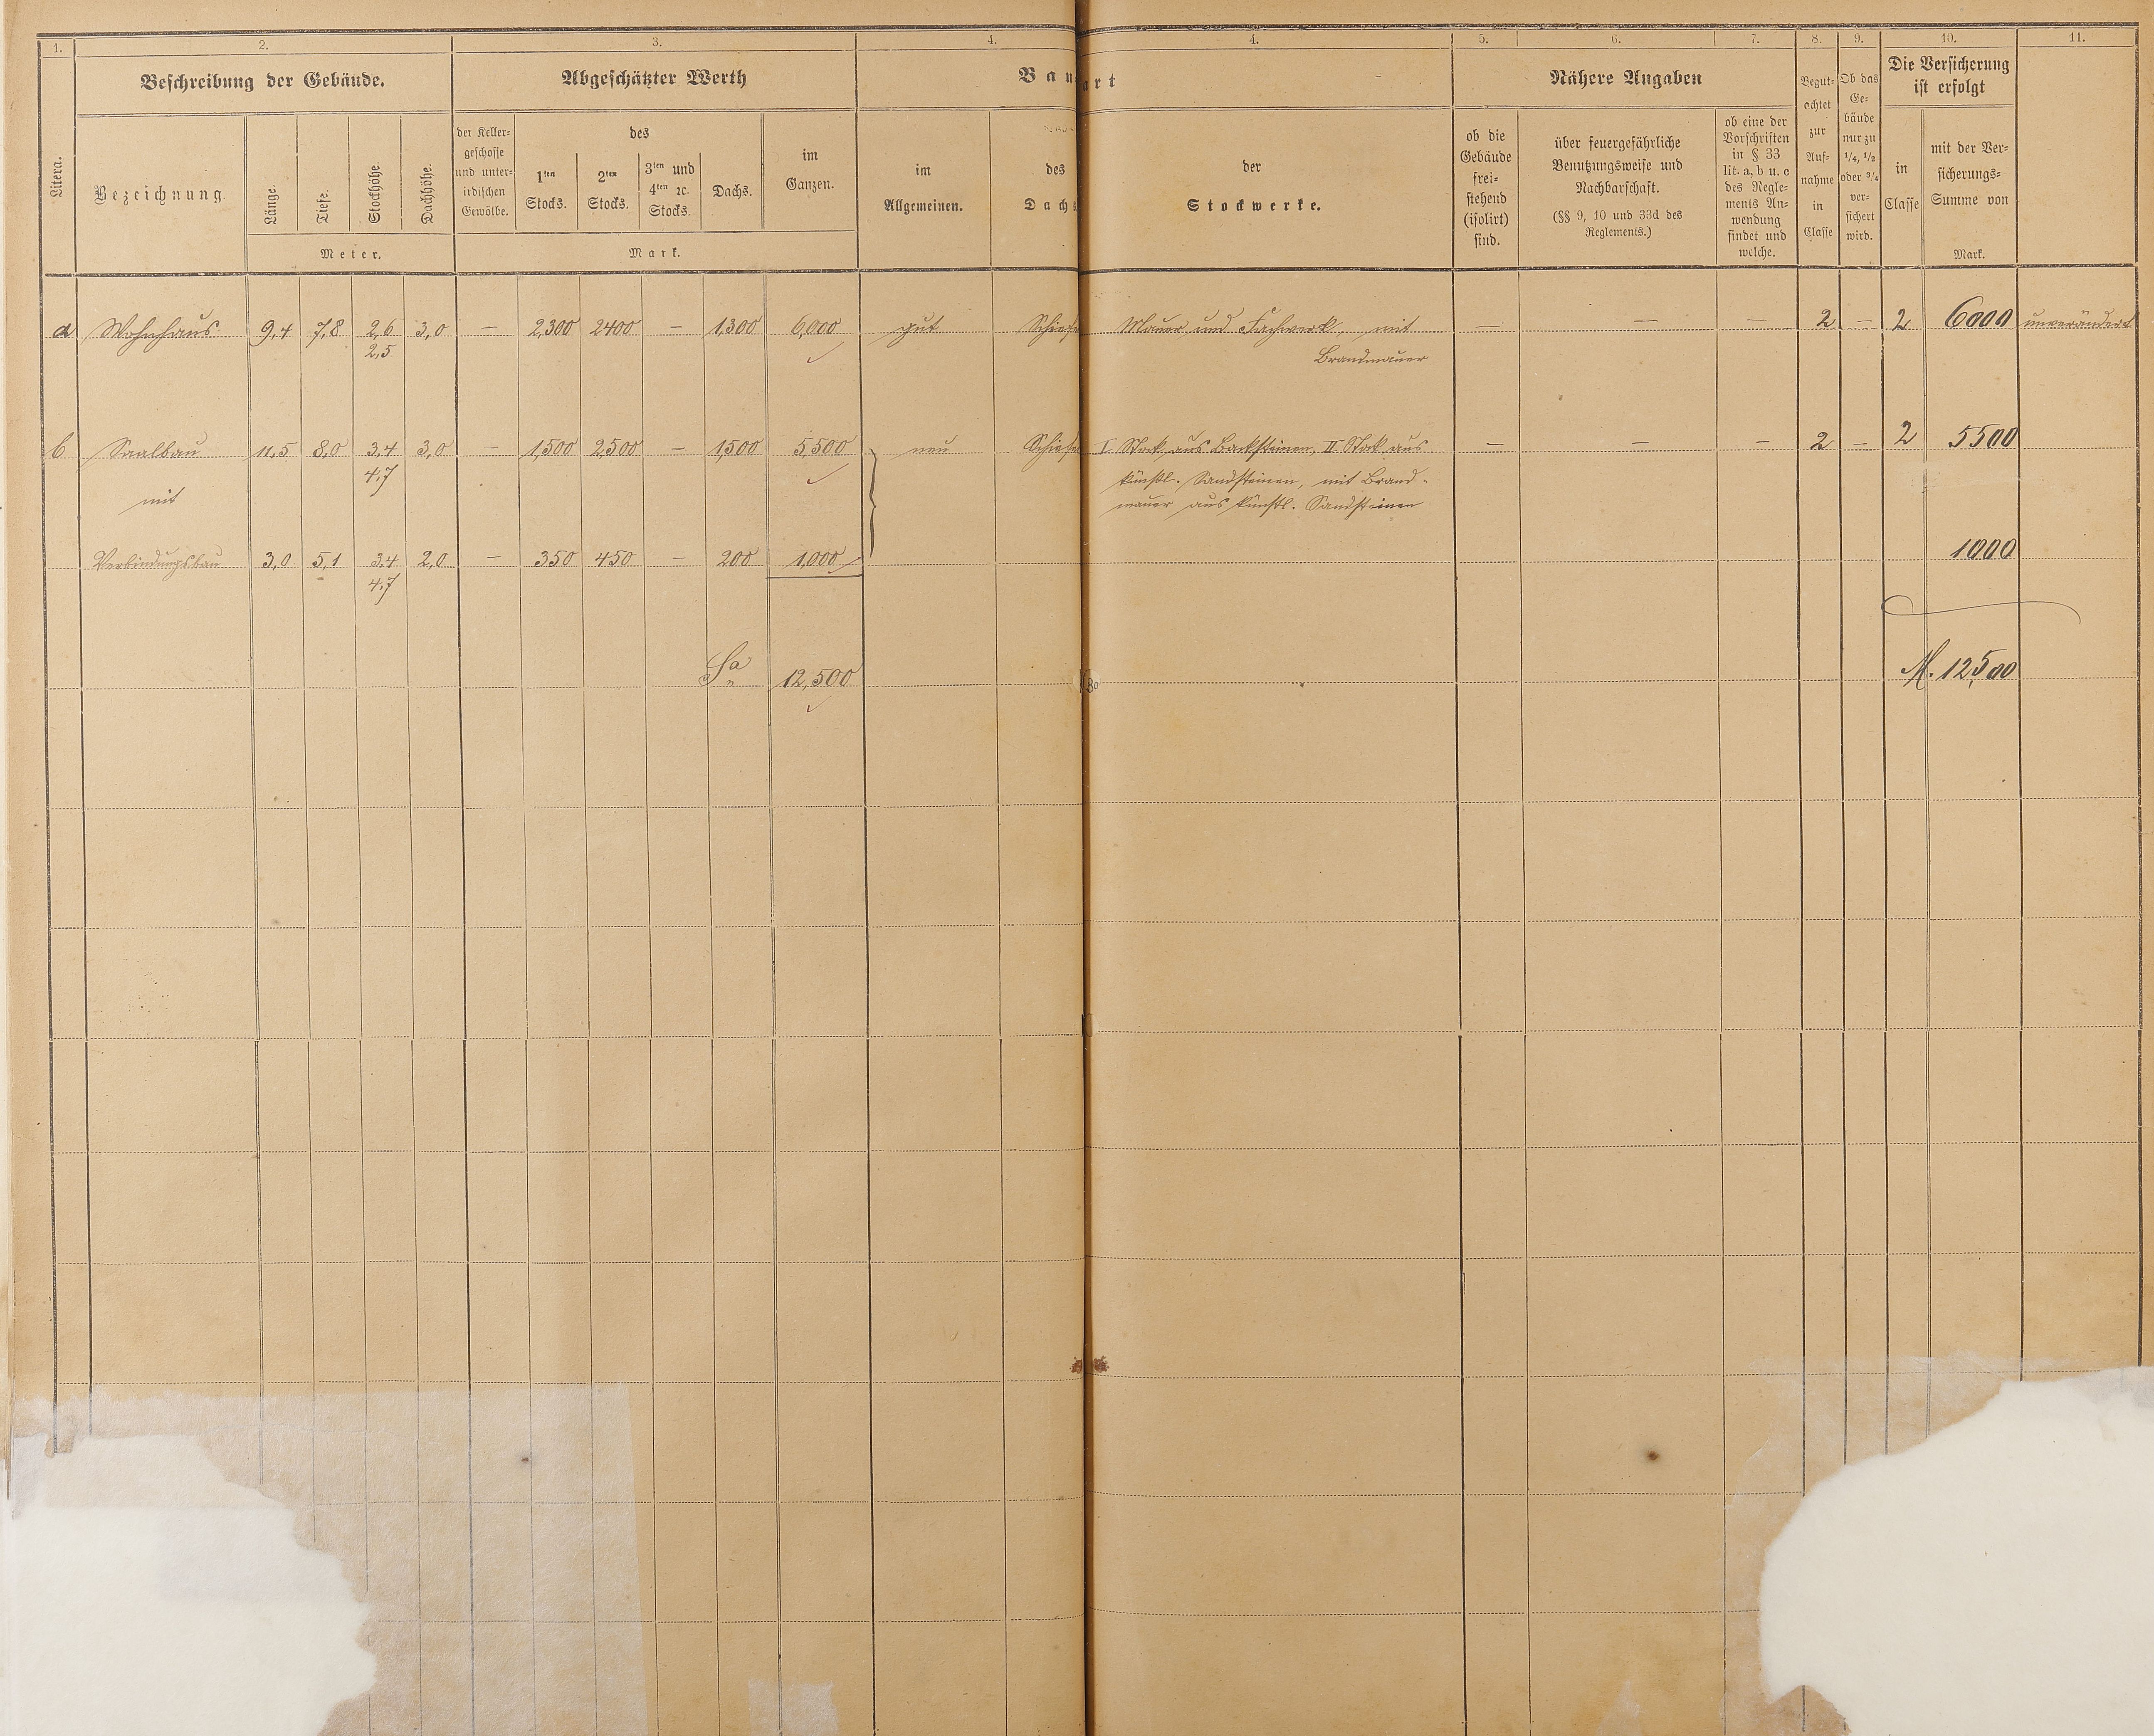 1. 2. 3. 4. 4. 5. 6. 7. 8. 9. 10. 11.
Beschreibung der Gebäude. Abgeschätzter Werth Bau art Nähere Angaben
Litera.
Bezeichnung.
Länge. Tiefe. Stockhöhe. Dachhöhe.
Meter.
der Keller-
geschosse
und unter-
irdischen
Gewölbe.
des
1ten
Stocks.
2ten
Stocks.
3ten und
4ten ec.
Stocks.
Dachs.
im
Ganzen.
Mark.
im
Allgemeinen.
des
Dachs
der
Stockwerke.
ob die
Gebäude
frei-
stehend
(isolirt)
sind.
über feuergefährliche
Benutzungsweise und
Nachbarschaft.
(§§ 9, 10 und 33d des
Reglements.)
ob eine der
Vorschriften
in § 33
lit. a, b u. c
des Regle-
ments An-
wendung
findet und
welche.
Begut-
achtet
zur
Auf-
nahme
in
Classe
Ob das
Ge-
bäude
nur zu
1/4, 1/2
oder 3/4
ver-
sichert
wird.
Die Versicherung
ist erfolgt
in
Classe
mit der Ver-
sicherungs-
Summe von
Mark.
a Wohnhaus 9,4 7,8 2,6 3,0 — 2,300 2400 — 1,300 6,000 gut Schiefe Mauer und Fachwerk, mit — — — 2 — 2 6000 unverändert
2,5 Brandmauer
b Saalbau 11,5 8,0 3,4 3,0 — 1,500 2,500 — 1,500 5,500 neu Schiefe I Stock aus Backsteinen, II Stock aus — — — 2 — 2 5500
4,7 künstl. Sandsteinen, mit Brand-
mit mauer aus künstl. Sandsteinen
Verbindungsbau 3,0 5,1 3,4 2,0 — 350 450 — 200 1,000 1000
4,7
Sa 12,500 M. 12,500